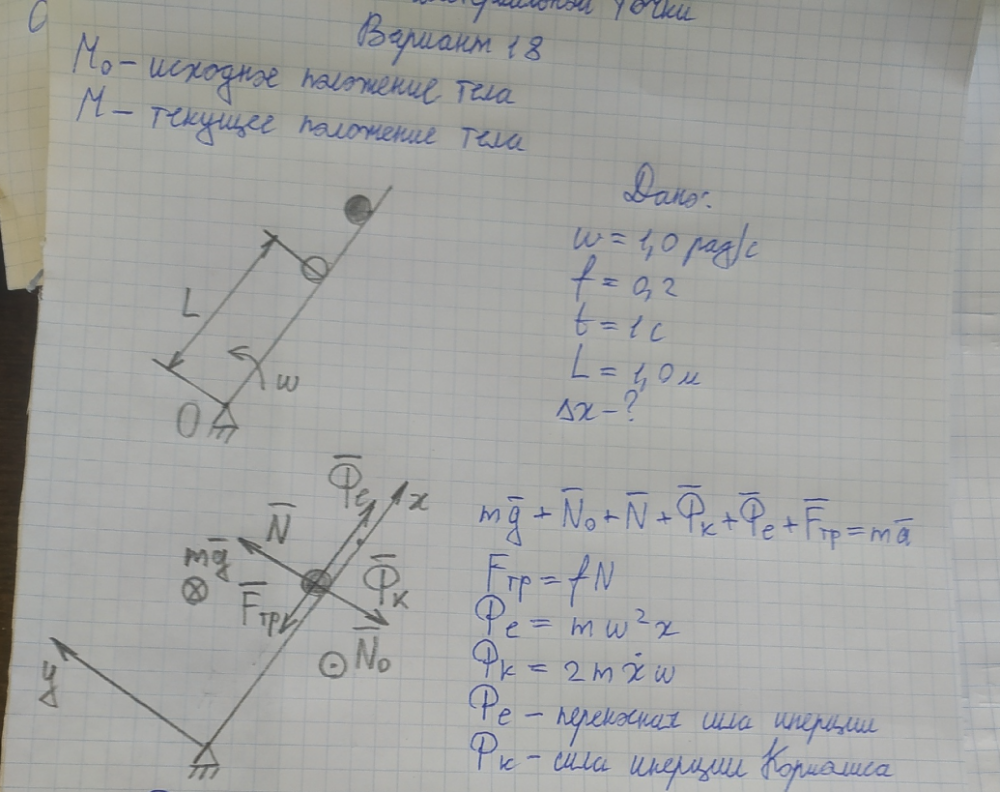 точки
Вариант 18
M₀ – исходное положение тела
M – текущее положение тела
Дано:
w = 1,0 рад/с
f = 0,2
t = 1 с
L = 1,0 м
Δx – ?
L
w
O
Φ̄e
x
N̄
mḡ
Φ̄к
F̄тр
N̄₀
y
mḡ + N̄₀ + N̄ + Φ̄к + Φ̄e + F̄тр = mā
Fтр = fN
Φe = mw²x
Φк = 2mẋw
Φe – переносная сила инерции
Φк – сила инерции Кориолиса